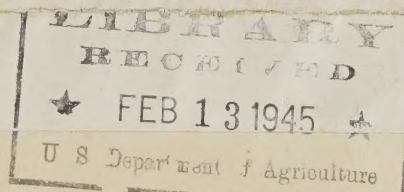 LIBRARY
RECEIVED
★ FEB 13 1945 ★
U S Department of Agriculture